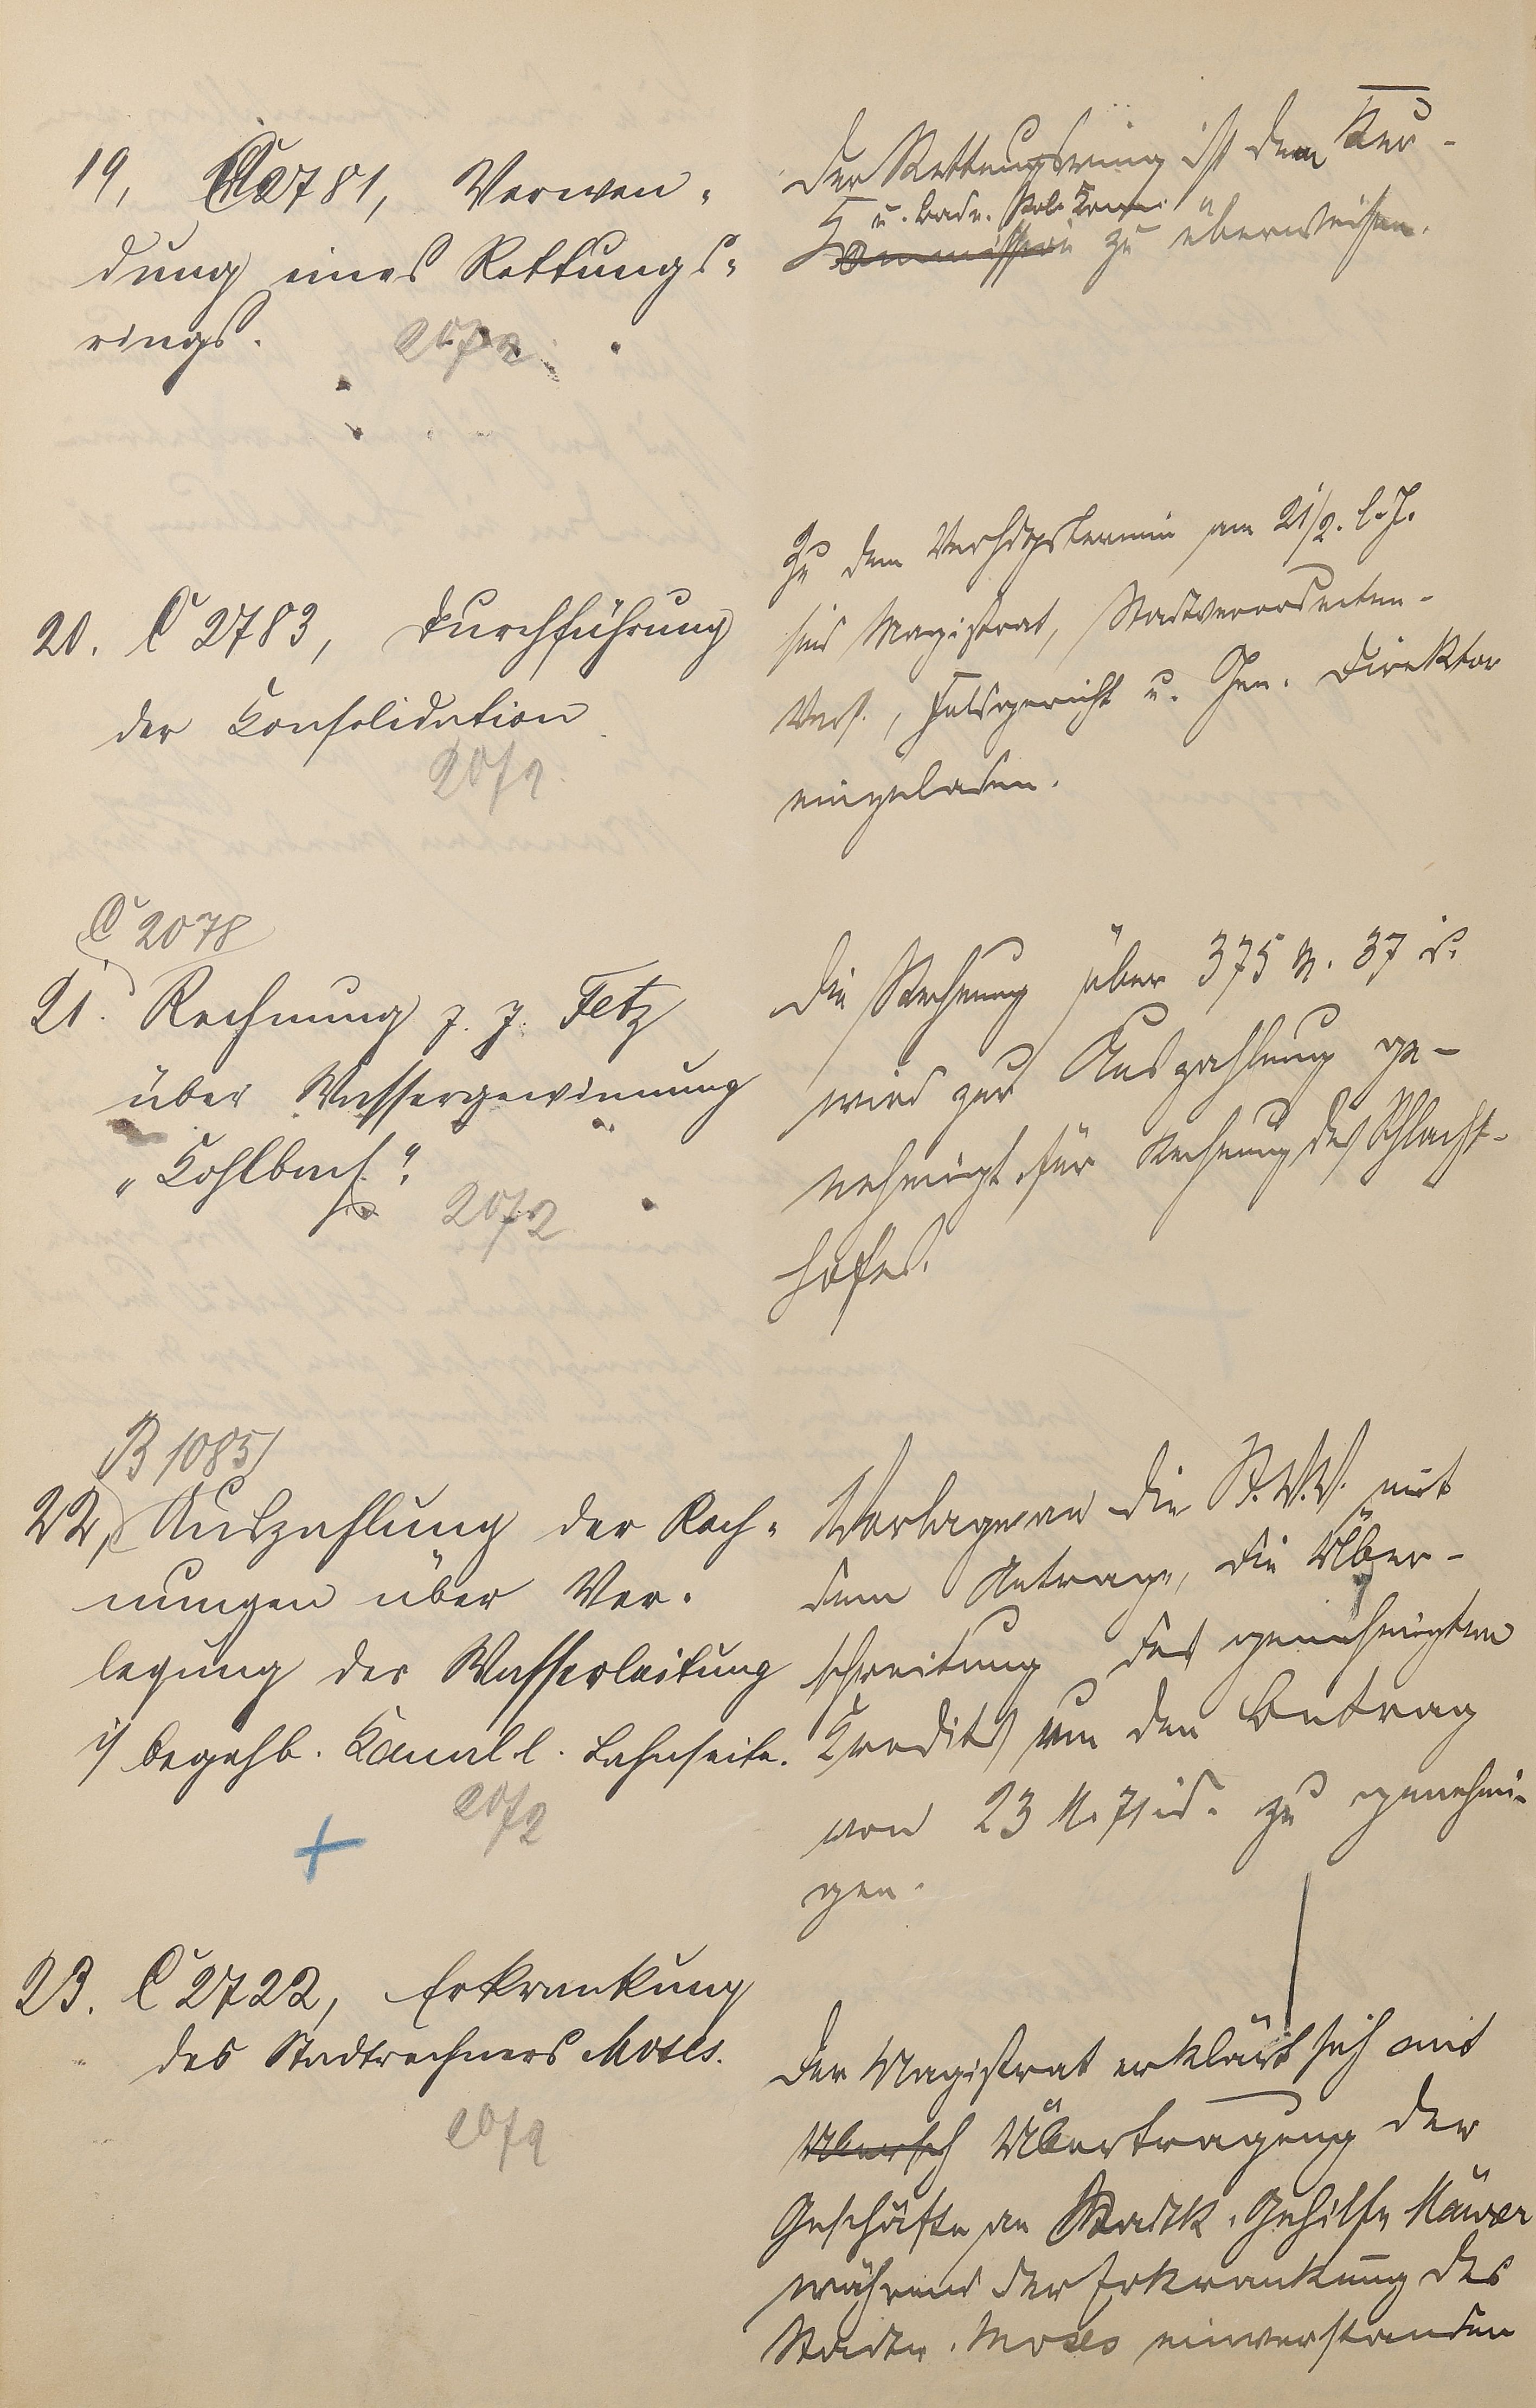 19, C 2781, Verwen-
dung eines Rettungs-
rings.
20/2
Der Rettungsring ist dem Kur-
u. Bade. Pol. Komm.
Kommission zu überweisen.
20. C 2783, Durchführung
der Konsolidation
20/2
Zu dem Verhdgstermin am 21/2. l. J.
sind Magistrat, Stadtverordneten-
Vers., Feldgericht u. Gen. Direktor
eingeladen.
C 2078
21. Rechnung J. J. Fetz
über Wassergewinnung
„Kohlbach“.
20/2
Die Rechnung über 375 M. 37 d.
wird zur Auszahlung ge-
nehmigt für Rechnung des Schlacht-
hofes.
B 1085
22, Auszahlung der Rech-
nungen über Ver-
legung der Wasserleitung
i/ begehb. Kanal l. Lahnseite.
20/2
Vorlage an die St. V. V. mit
dem Antrage, die Über-
schreitung des genehmigten
Kredits um den Betrag
von 23 M. 71 d. zu genehmi-
gen.
23. C 2722, Erkrankung
des Stadtrechners Moses.
20/2
Der Magistrat erklärt sich mit
Übersch Übertragung der
Geschäfte an Stadtk. Gehilfe
während der Erkrankung des
Stadtr. Moses einverstanden